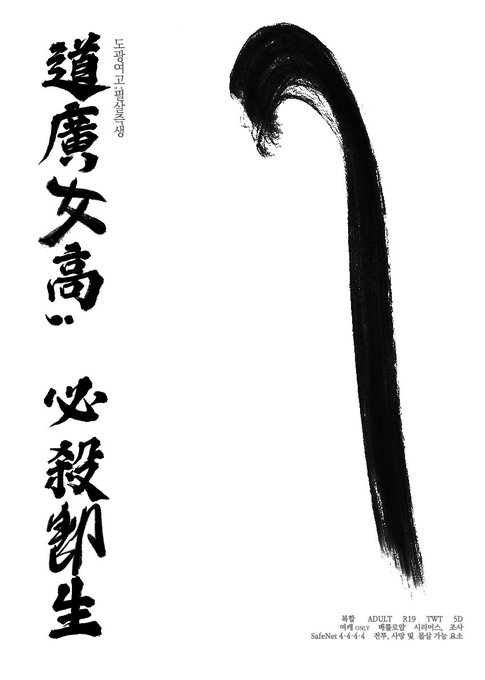 道廣女高:
必殺卽生
도광여고:필살즉생
복합 ADULT R19 TWT 5D
여캐 ONLY 배틀로얄 시리어스, 조사
SafeNet 4-4-4-4 전투, 사망 및 몰살 가능 요소